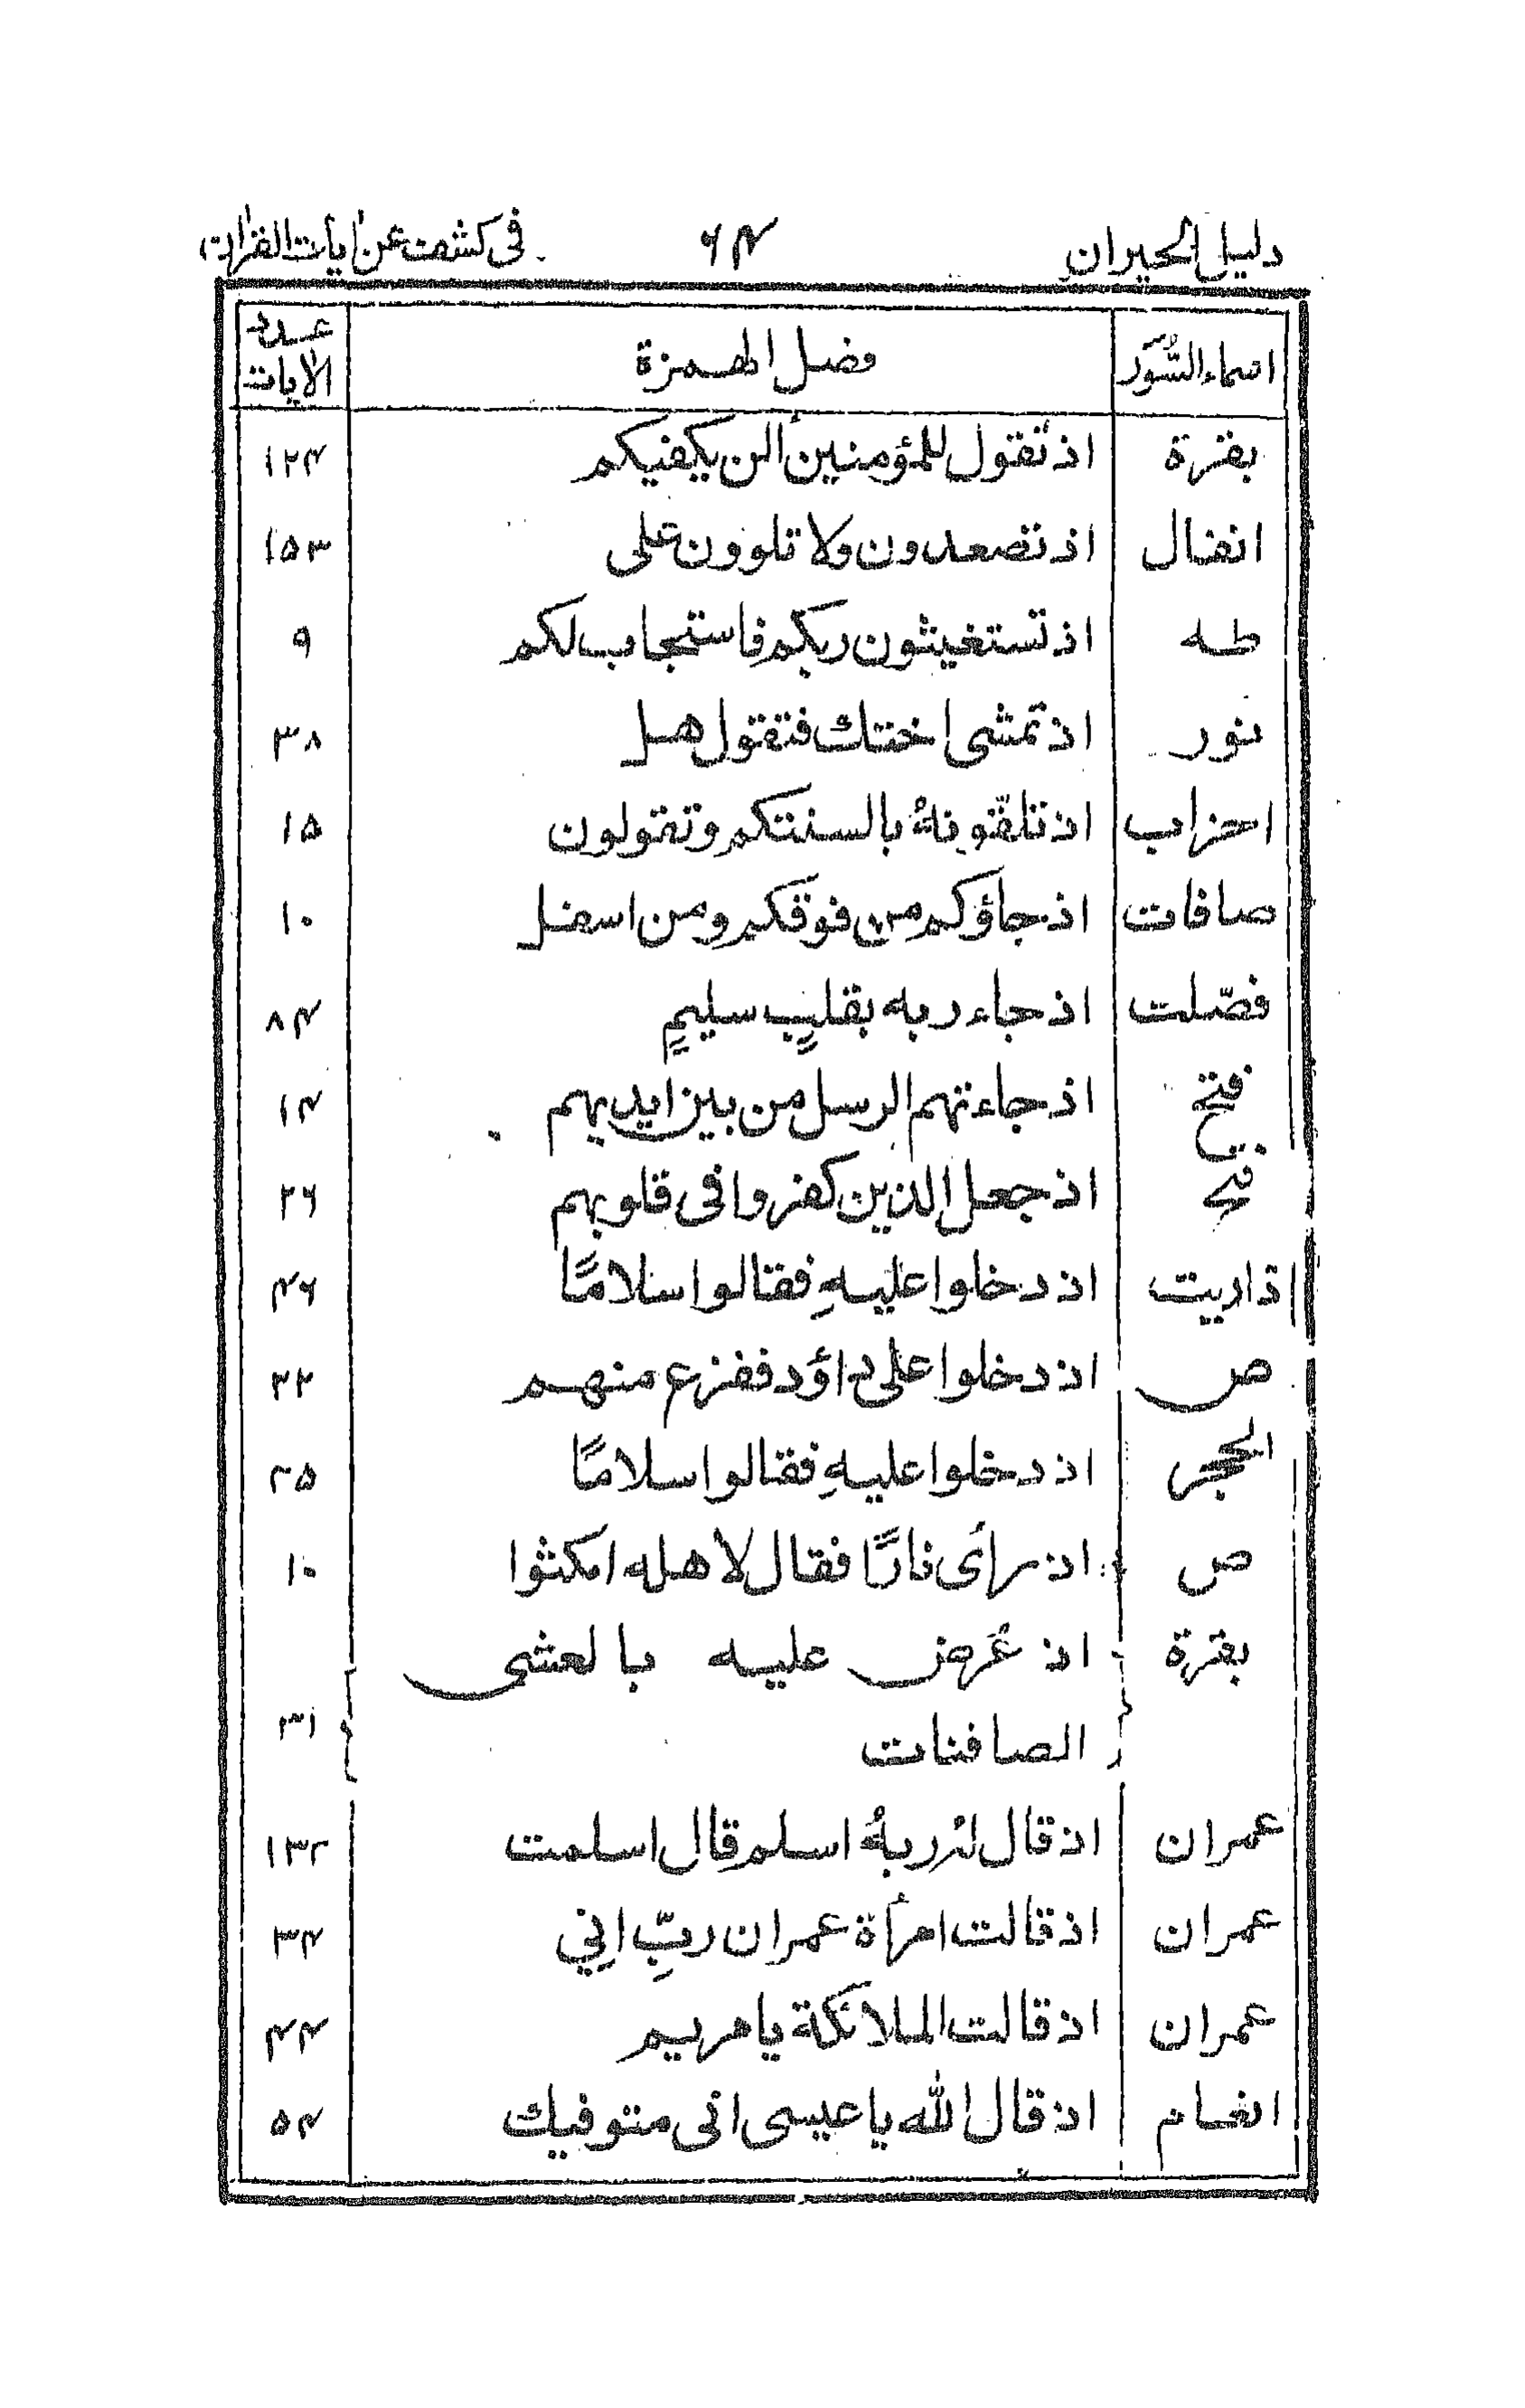 دليل الحيران ۶۴ فى كشف عن اٰيات القراٰن
اسماء السُّوَر فصل الهمزة عدد الاٰيات
بقرة اذ تقول للمؤمنين ألن يكفيكم ۱۲۴
انفال اذ تصعدون ولا تلوون على ۱۵۳
طه اذ تستغيثون ربكم فاستجاب لكم ۹
نور اذ تمشى اختك فتقول هل ۳۸
احزاب اذ تلقّونهٗ بالسنتكم وتقولون ۱۵
صافات اذ جاؤكم من فوقكم ومن اسفل ۱۰
فصّلت اذ جاء ربه بقلبٍ سليمٍ ۸۴
فتح اذ جاءتهم الرسل من بين ايديهم ۱۴
فتح اذ جعل الذين كفروا فى قلوبهم ۲۶
ذاريت اذ دخلوا عليهِ فقالوا سلامًا ۴۶
ص اذ دخلوا على داؤد ففزع منهم ۲۲
الحجر اذ دخلوا عليهِ فقالوا سلامًا ۲۵
ص اذ رأى نارًا فقال لاهله امكثوا ۱۰
بقرة اذ عُرض عليه بالعشى
الصافنات ۳۱
عمران اذ قال لهٗ ربهٗ اسلم قال اسلمت ۱۳۲
عمران اذ قالت امرأة عمران ربِّ اِنِي ۳۴
عمران اذ قالت الملائكة يا مريم ۴۴
انعام اذ قال الله يا عيسى انى متوفيك ۵۴